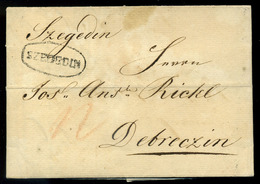 Szegedin
Herrn
SZEGEDIN
Jos. Ant. Rickl
12
Debreczin